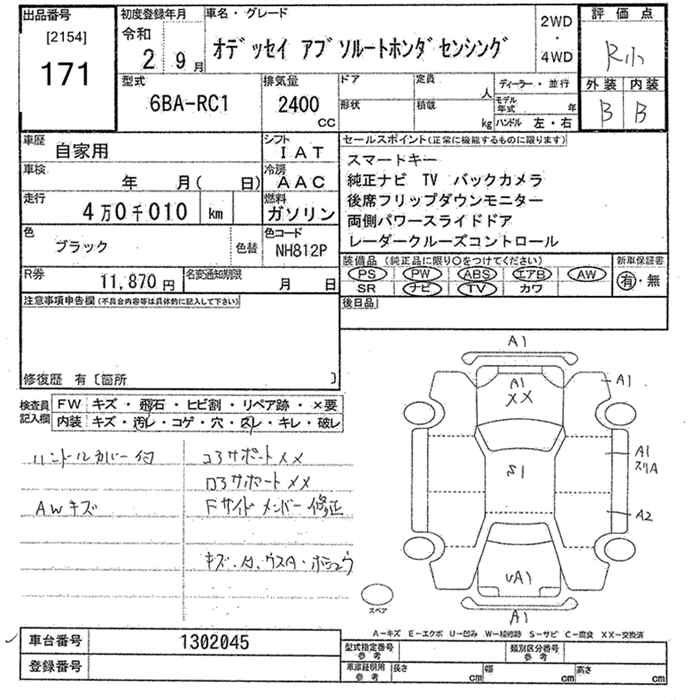 出品番号 初度登録年月 車名・グレード 2WD ・ 4WD 評価点
[2154] 171 令和 2 9月 オデッセイ アブソルートホンダセンシング R小
型式 排気量 ドア 定員 人 ディーラー・並行 外装 内装
6BA-RC1 2400 CC 形状 積載 kg モデル年式 年 ハンドル 左・右 B B
車歴 自家用 シフト IAT セールスポイント(正常に機能するものに限ります)
車検 年 月( 日) 冷房 AAC スマートキー
純正ナビ TV バックカメラ
走行 4万0千010 km 燃料 ガソリン 後席フリップダウンモニター
両側パワースライドドア
色 ブラック 色替 色コード NH812P レーダークルーズコントロール
装備品(純正品に限り○をつけてください) 新車保証書
R券 11,870円 名変通知期限 月 日 PS PW ABS エアB AW 有・無
SR ナビ TV カワ
注意事項申告欄(不具合内容等は具体的に記入して下さい) 後日品
修復歴 有〔箇所 〕
検査員記入欄 FW キズ・飛石・ヒビ割・リペア跡・×要
内装 キズ・汚レ・コゲ・穴・スレ・キレ・破レ
ハンドルカバー付 コアサポートXX
ロアサポートXX
AWキズ Fサイドメンバー修正
キズ・
A1
A1
XX
A1
A1
スリA
S1
A2
UA1
A1
スペア
A-キズ E-エクボ U-凹み W-補修跡 S-サビ C-腐食 XX-交換済
車台番号 1302045 型式指定番号 参考 類別区分番号 参考
登録番号 車庫証明用 参考 長さ cm 幅 cm 高さ cm